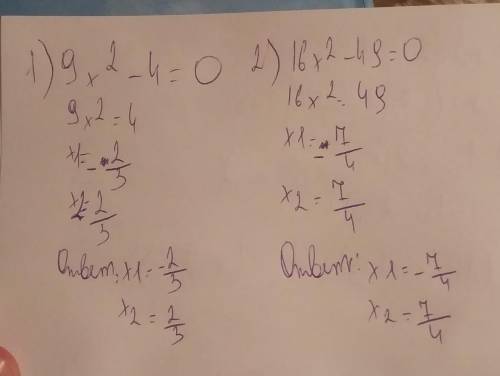 1) 9x² - 4 = 0
9x² = 4
x1 = -2/3
x2 = 2/3
Ответ: x1 = -2/3
x2 = 2/3
2) 16x² - 49 = 0
16x² = 49
x1 = -7/4
x2 = 7/4
Ответ: x1 = -7/4
x2 = 7/4